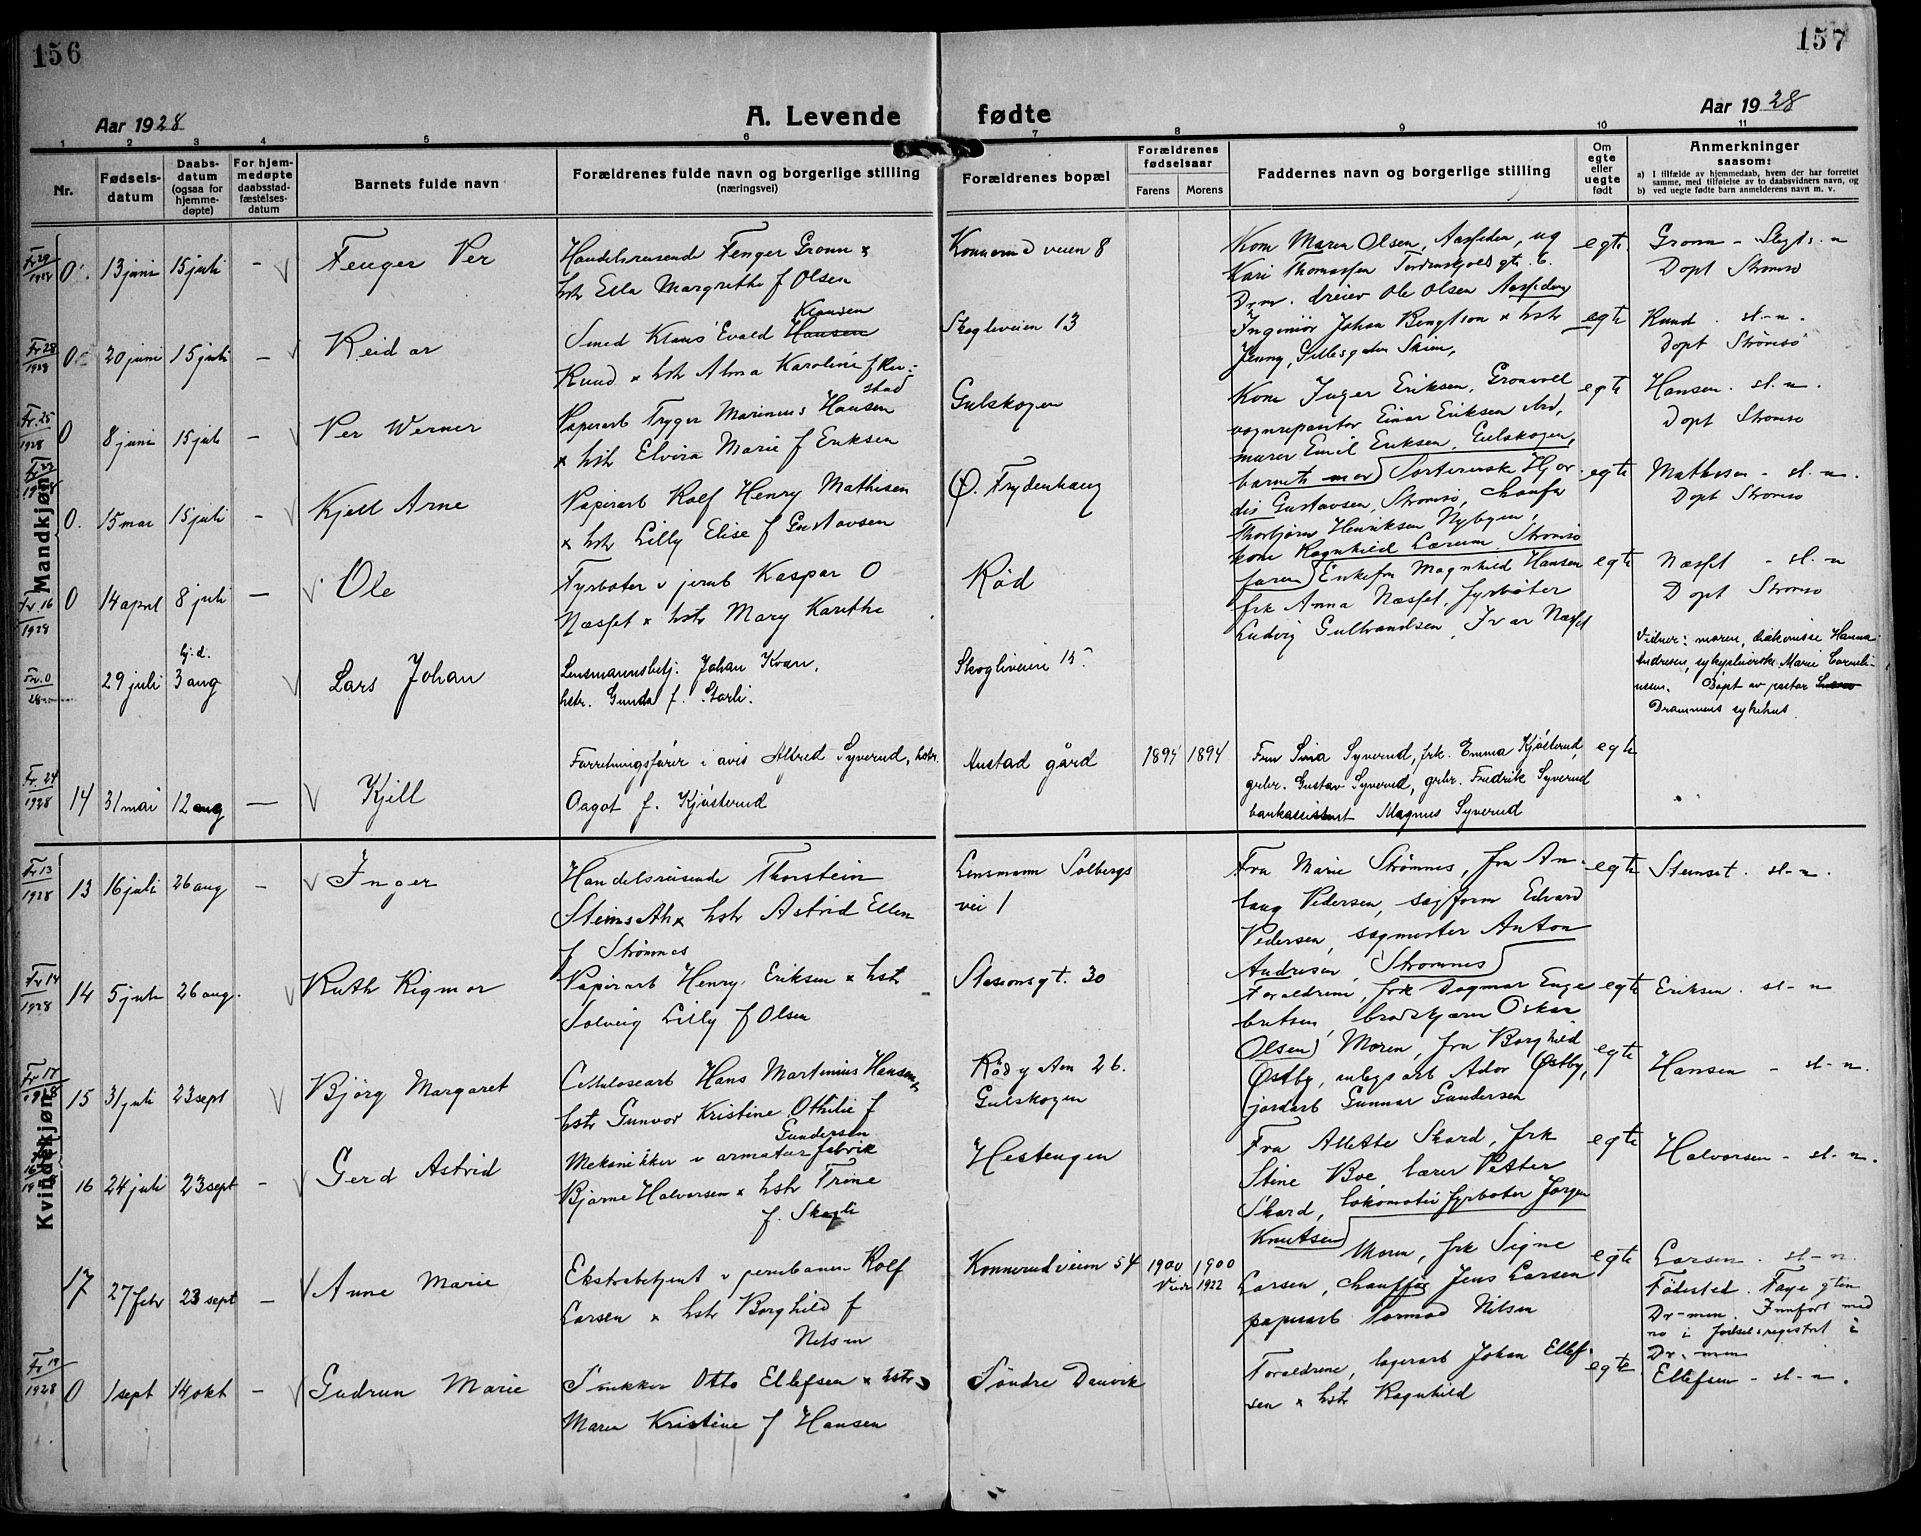 156
157
Aar 1928
A. Levende fødte
Aar 1928
1 2 3 4 5 6 7 8 9 10 11
Nr.
Fødsels-
datum
Daabs-
datum
(ogsaa for
hjemme-
døpte)
For hjem-
medøpte
daabsstad-
fæstelses-
datum
Barnets fulde navn
Forældrenes fulde navn og borgerlige stilling
(næringsvei)
Forældrenes bopæl
Forældrenes
fødselsaar
Farens
Morens
Faddernes navn og borgerlige stilling
Om
egte
eller
uegte
født
Anmerkninger
saasom:
a) I tilfælde av hjemmedaab, hvem der har forrettet
samme, med tilføielse av to daabsvidners navn, og
b) ved uegte fødte barn anmelderens navn m. v.
Mandkjøn
Fr 29
1928
0 13 juni 15 juli –
Fenger Per
Handelsreisende Fenger Gronn x
hstr Ella Margrethe f Olsen
Konnerud veien 8
Kone Maren Olsen, Aassiden, ug
Kari Thomassen Tordenskjolds gt. 6.
Drm. dreier Ole Olsen Aassiden
egte
Gronn – Slegts. n
Døpt Strømsø
Fr 28
1928
0 20 juni 15 juli –
Reidar
Klausen
Smed Klaus Evald Hansen
Ruud x hstr Alma Karoline f
stad
Skogliveien 13
Ingeniør Johan Bengtson x hstr
Jenny, Skien,
egte
Ruud. sl-n.
Døpt Strømsø
Fr. 25
1928
0 8 juni 15 juli –
Per Werner
Papirarb Tryger Marinius Hansen
x hstr Elvira Marie f Eriksen
Gulskogen
Kone Inger Eriksen, Grønvoll
vognreparatør Einar Eriksen ibid,
murer Emil Eriksen, Gulskogen,
egte
Hansen. sl. n.
Døpt Strømsø
0. 15 mai 15 juli –
Kjell Arne
Papirarb Rolf Henry Mathisen
x hstr Lilly Elise f Gustavsen
Ø. Frydenhaug
barnets mor) Sorterirske Hjør
dis Gustavsen, Strømsø, chauffør
Thorbjørn Henriksen Nybyen,
kone Ragnhild Lærum Strømsø
egte
Mathisen – sl. n.
Døpt Strømsø
Fr. 16
1928
0 14 april 8 juli –
Ole
Fyrbøter v jernb Kaspar O
Næsset x hstr Mary Karethe
Rød
faren) Enkefru Magnhild Hansen
frk Anna Næsset, fyrbøter
Ludvig Gulbrandsen, Ivar Næsset
egte
Næsset – sl. n
Døpt Strømsø
Fr. 0
28
29 juli hj. d. 3 aug
Lars Johan
Lensmannsbetj. Johan Kvan,
hstr. Gunda f. Garli.
Skogliveien 15
Vidner: moren, diakonisse Hanna
Andresen, sykepleierske Marie Corneli-
ussen. Døpt av pastor
Drammens sykehus.
Fr. 24
1928
14 31 mai 12 aug –
Kjell
Forretningsfører i avis Alfred Syverud, hstr.
Dagot f. Kjøsterud
Austad gård
1894 1894
Fru Sina Syverud, frk. Emma Kjøsterud,
grbr. Gustav Syverud, grbr. Fredrik Syverud
bankassistent Magnus Syverud
egte
Kvindekjøn
Fr 13
1928
13 16 juli 26 aug –
Inger
Handelsreisende Thorstein
Steinseth x hstr Astrid Ellen
f Strømnes
Lensmann Solbergs
vei 1
Fru Marie Strømnes, fru An-
laug Pedersen, sagform Edvard
Pedersen, sagmester Anton
Andresen, (Strømnes)
egte
Steinset. sl-n.
Fr 14
1928
14 5 juli 26 aug. –
Ruth Rigmor
Papirarb Henry Eriksen x hstr
Solveig Lilly f Olsen
Stasionsgt. 30
Foreldrene, frk Dagmar Enge
bretsen, brødskjærer Oskar
Olsen)
egte
Eriksen. sl-n
Fr 17
15 31 juli 23 sept
Bjørg Margaret
Cellulosearb Hans Martinius Hansen x
hstr Gunvor Kristine Othilie f
Gundersen
Rødgaten 26.
Gulskogen
Moren, fru Borghild
Østby, anlegsarb Ador Østby,
jordarb Gunnar Gundersen
egte
Hansen – sl-n.
16 24 juli 23 sept –
Gerd Astrid
Mekanikker v armaturfabrik
Bjarne Halvorsen x hstr Trine
f. Skogli
Hestengen
Fru Alette Skard, frk
Stine Boe, lærer Petter
Skard, lokomotivfyrbøter Jørgen
Knutsen)
egte
Halvorsen – sl-n.
17 27 febr 23 sept –
Anne Marie
Ekstrabetjent v jernbanen Rolf
Larsen x hstr Borghild f
Nilsen
Konnerudveien 54
1900 1900
Viede 1922
Moren, frk Signe
Larsen, chauffør Jens Larsen
papirarb Tormod Nilsen
egte
Larsen. sl-n.
Fødested. Fayegten
Dr-men. Innført med
no i fødselsregistret i
Dr-men
Fr 19
1928
0 1 sept 14 okt –
Gudrun Marie
Snekker Otto Ellefsen x hstr
Maren Kristine f Hansen
Søndre Danvik
Foreldrene, lagerarb Johan Ellef-
sen x hstr Ragnhild
egte
Ellefsen – sl-n.